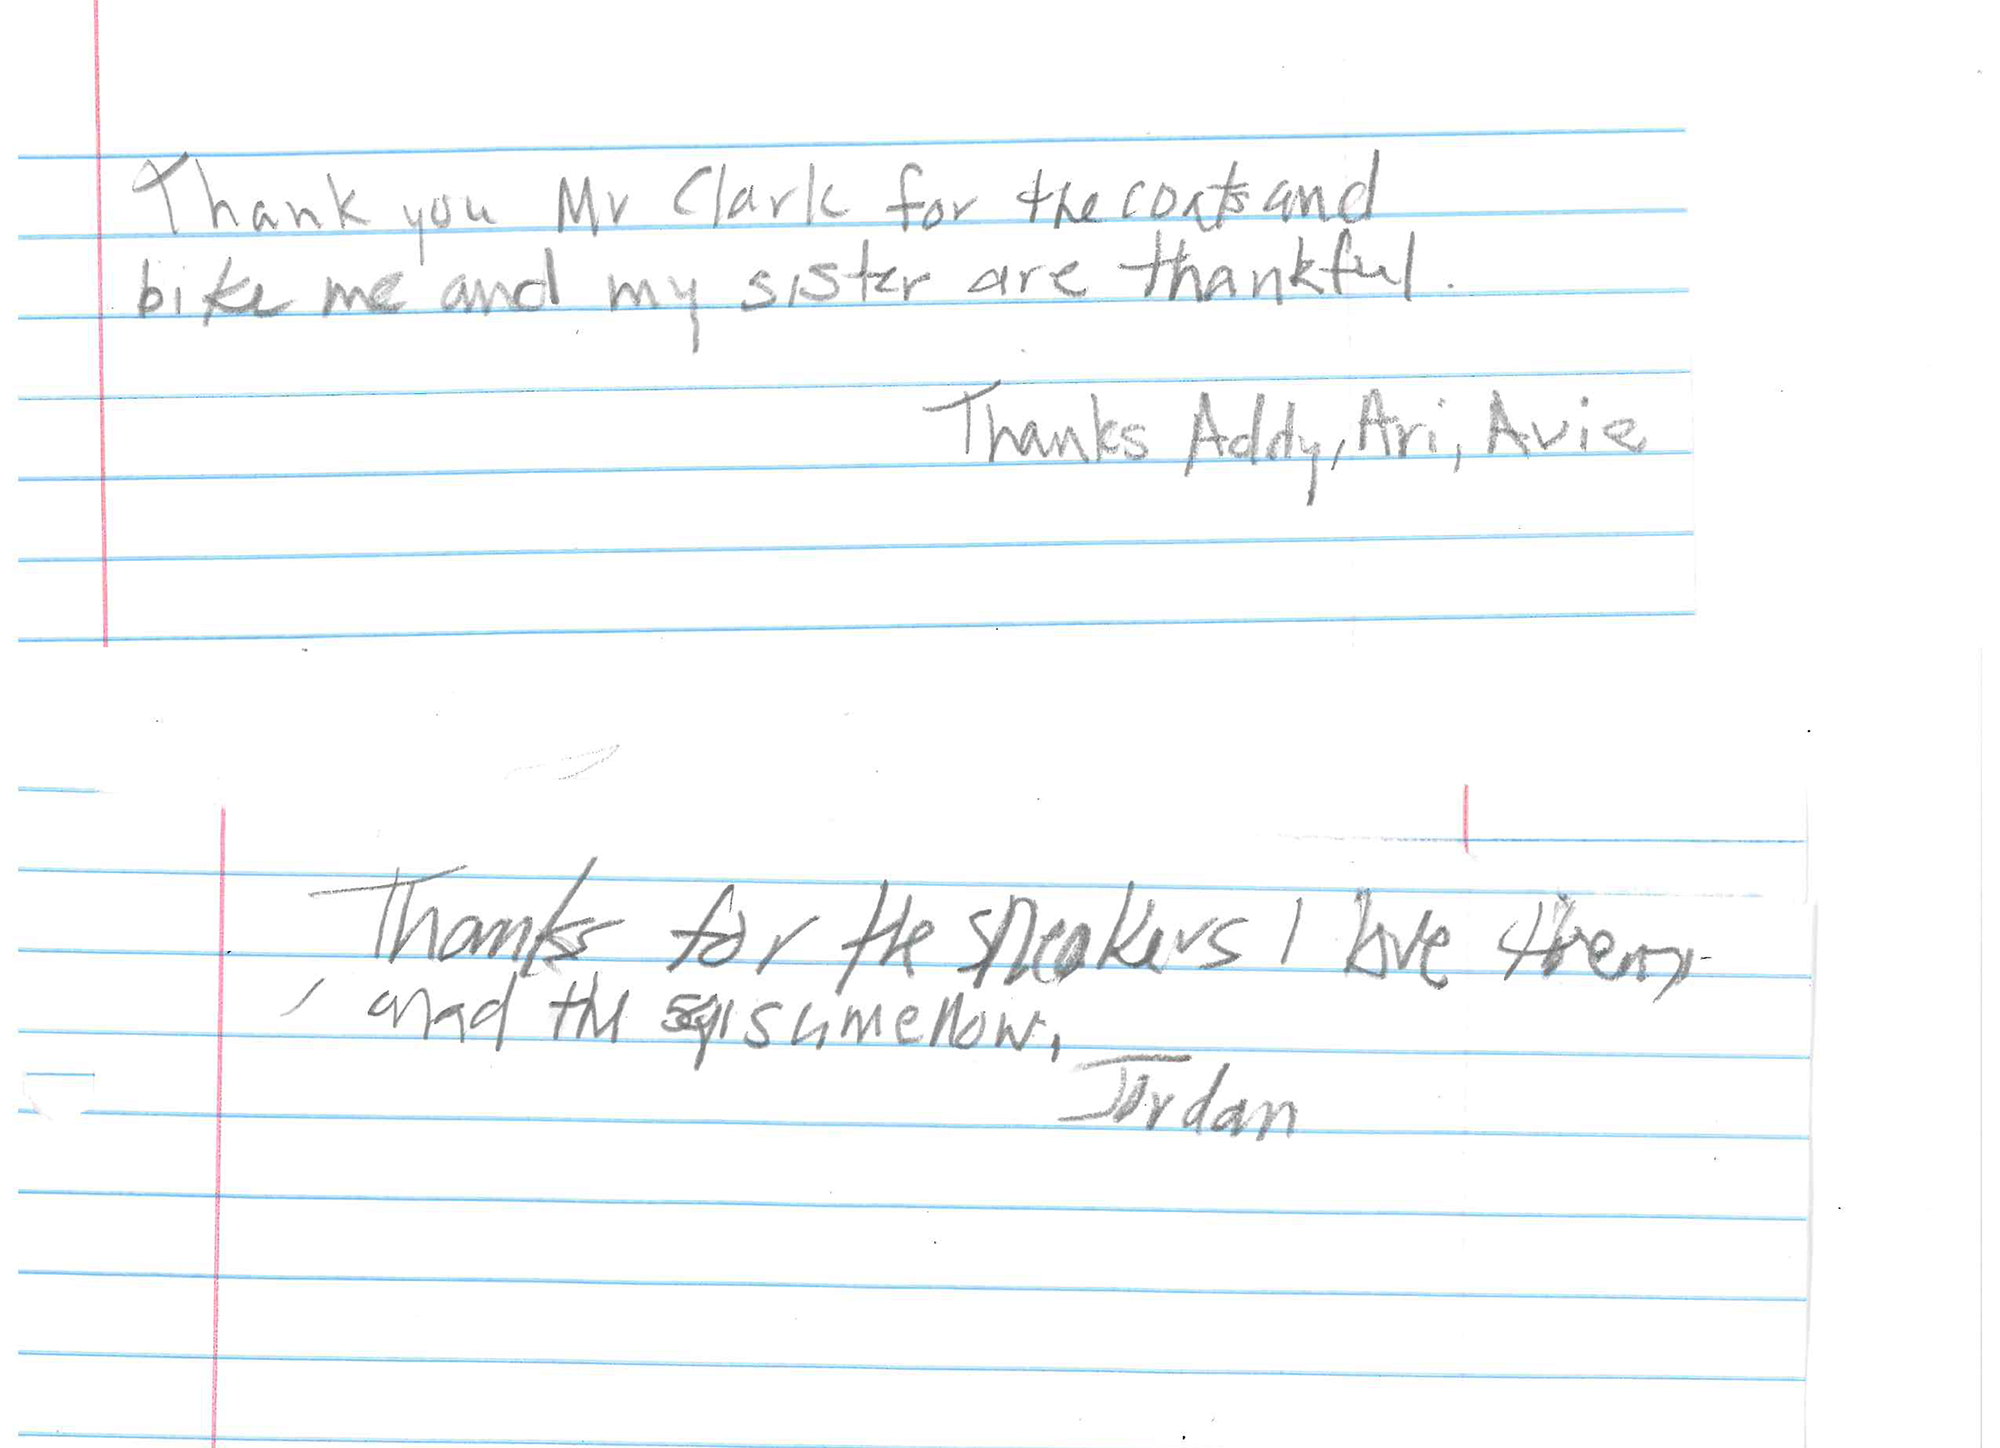 Thank you Mr Clark for the coats and
bike me and my sister are thankful.
Thanks Addy, Ari, Avie
Thanks for the speakers I love them
anad the sqisumellow.
Jordan